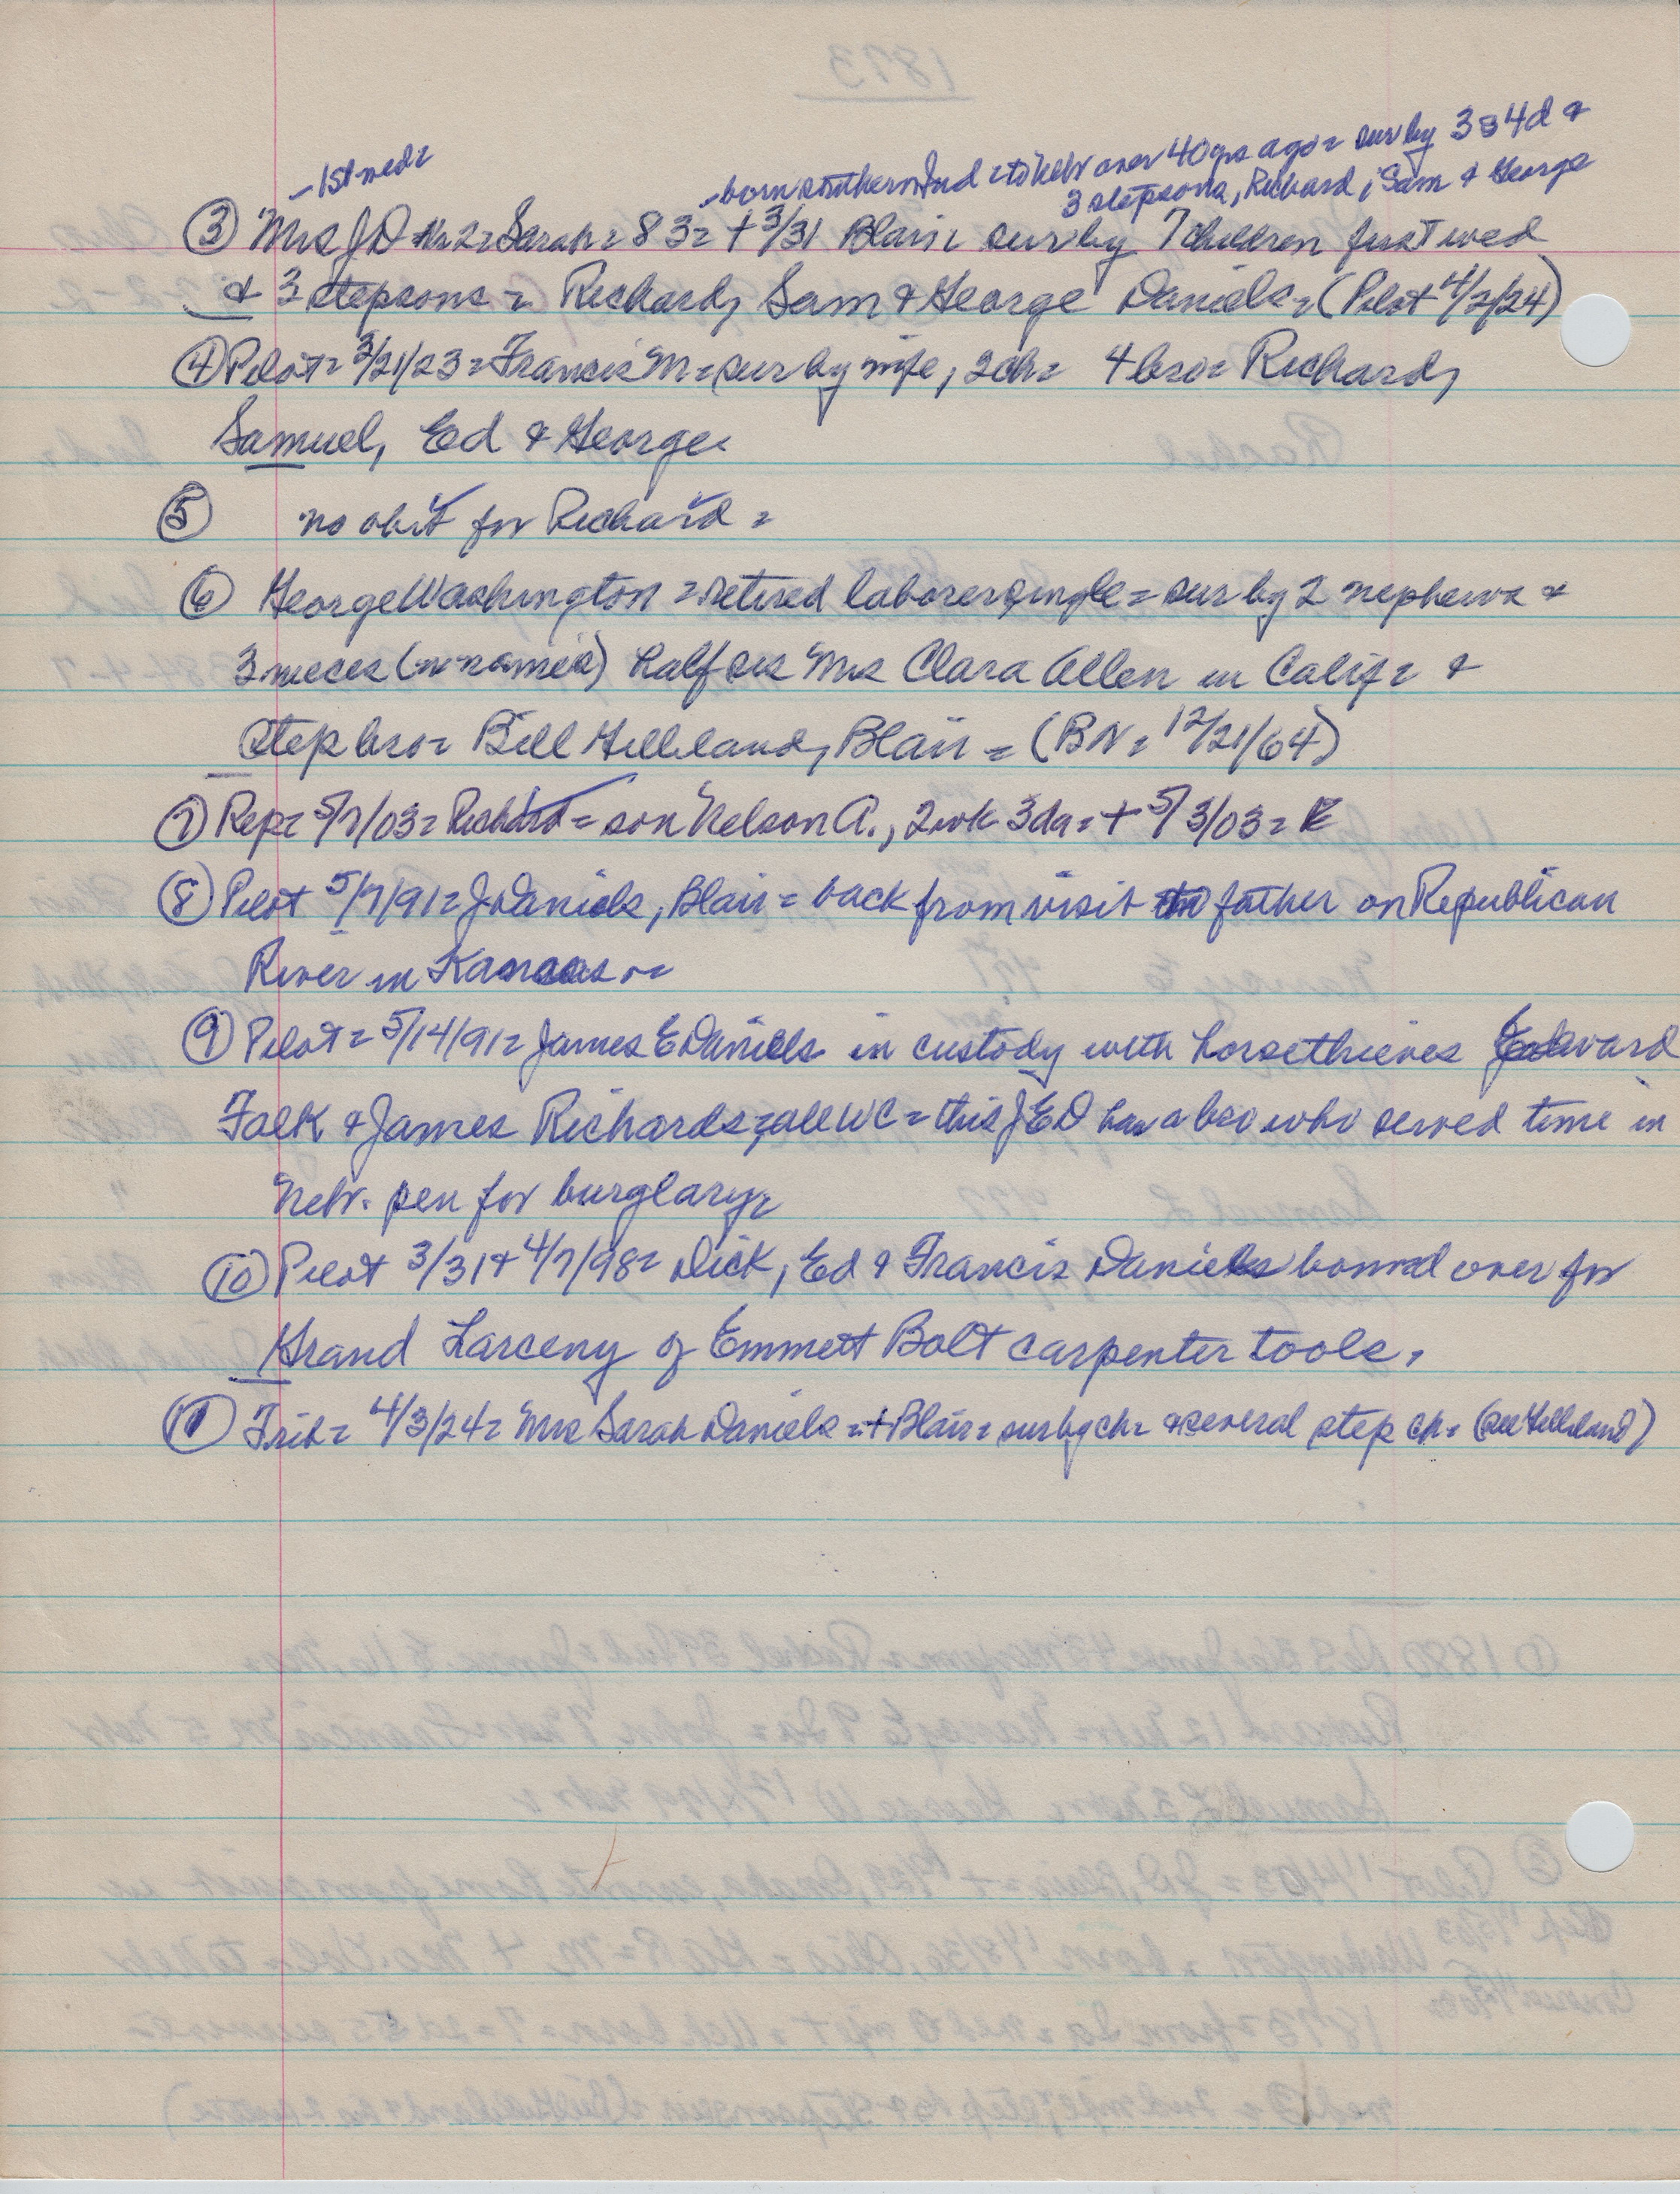 - 1st wed =
- born southern Ind = to Nebr over 40 yrs ago = sur by 3 s 4d &
3 stepsons, Richard, Sam & George
③ Mrs J D - No 2 = Sarah = 83 = + 3/31 Blair = sur by 7 children first wed
& 3 stepsons = Richard, Sam & George Daniels = (Pilot 4/2/24)
④ Pilot = 3/21/23 = Francis M = sur by wife, 2ch = 4 bro = Richard,
Samuel, Ed & George =
⑤ no obit for Richard =
⑥ George Washington = retired laborer single = sur by 2 nephews &
3 nieces (no names) half sis Mrs Clara Allen in Calif = &
Step bro = Bill Hilleland, Blair = (BN = 12/21/64)
⑦ Rep = 5/7/03 = Richard = son Nelson A., 2wk 3da = + 5/3/03 =
⑧ Pilot 5/7/91 = J Daniels, Blair = back from visit father on Republican
River in Kansas =
⑨ Pilot = 5/14/91 = James E Daniels in custody with horsethieves Edward
Falk & James Richards = all WC = this J E D has a bro who served time in
Nebr. pen for burglary =
⑩ Pilot 3/31 & 4/7/98 = Dick, Ed & Francis Daniels bound over for
Grand Larceny of Emmett Bolt carpenter tools,
⑪ Trib = 4/3/24 = Mrs Sarah Daniels = + Blair = sur by ch = & several step ch = (see Hilleland)